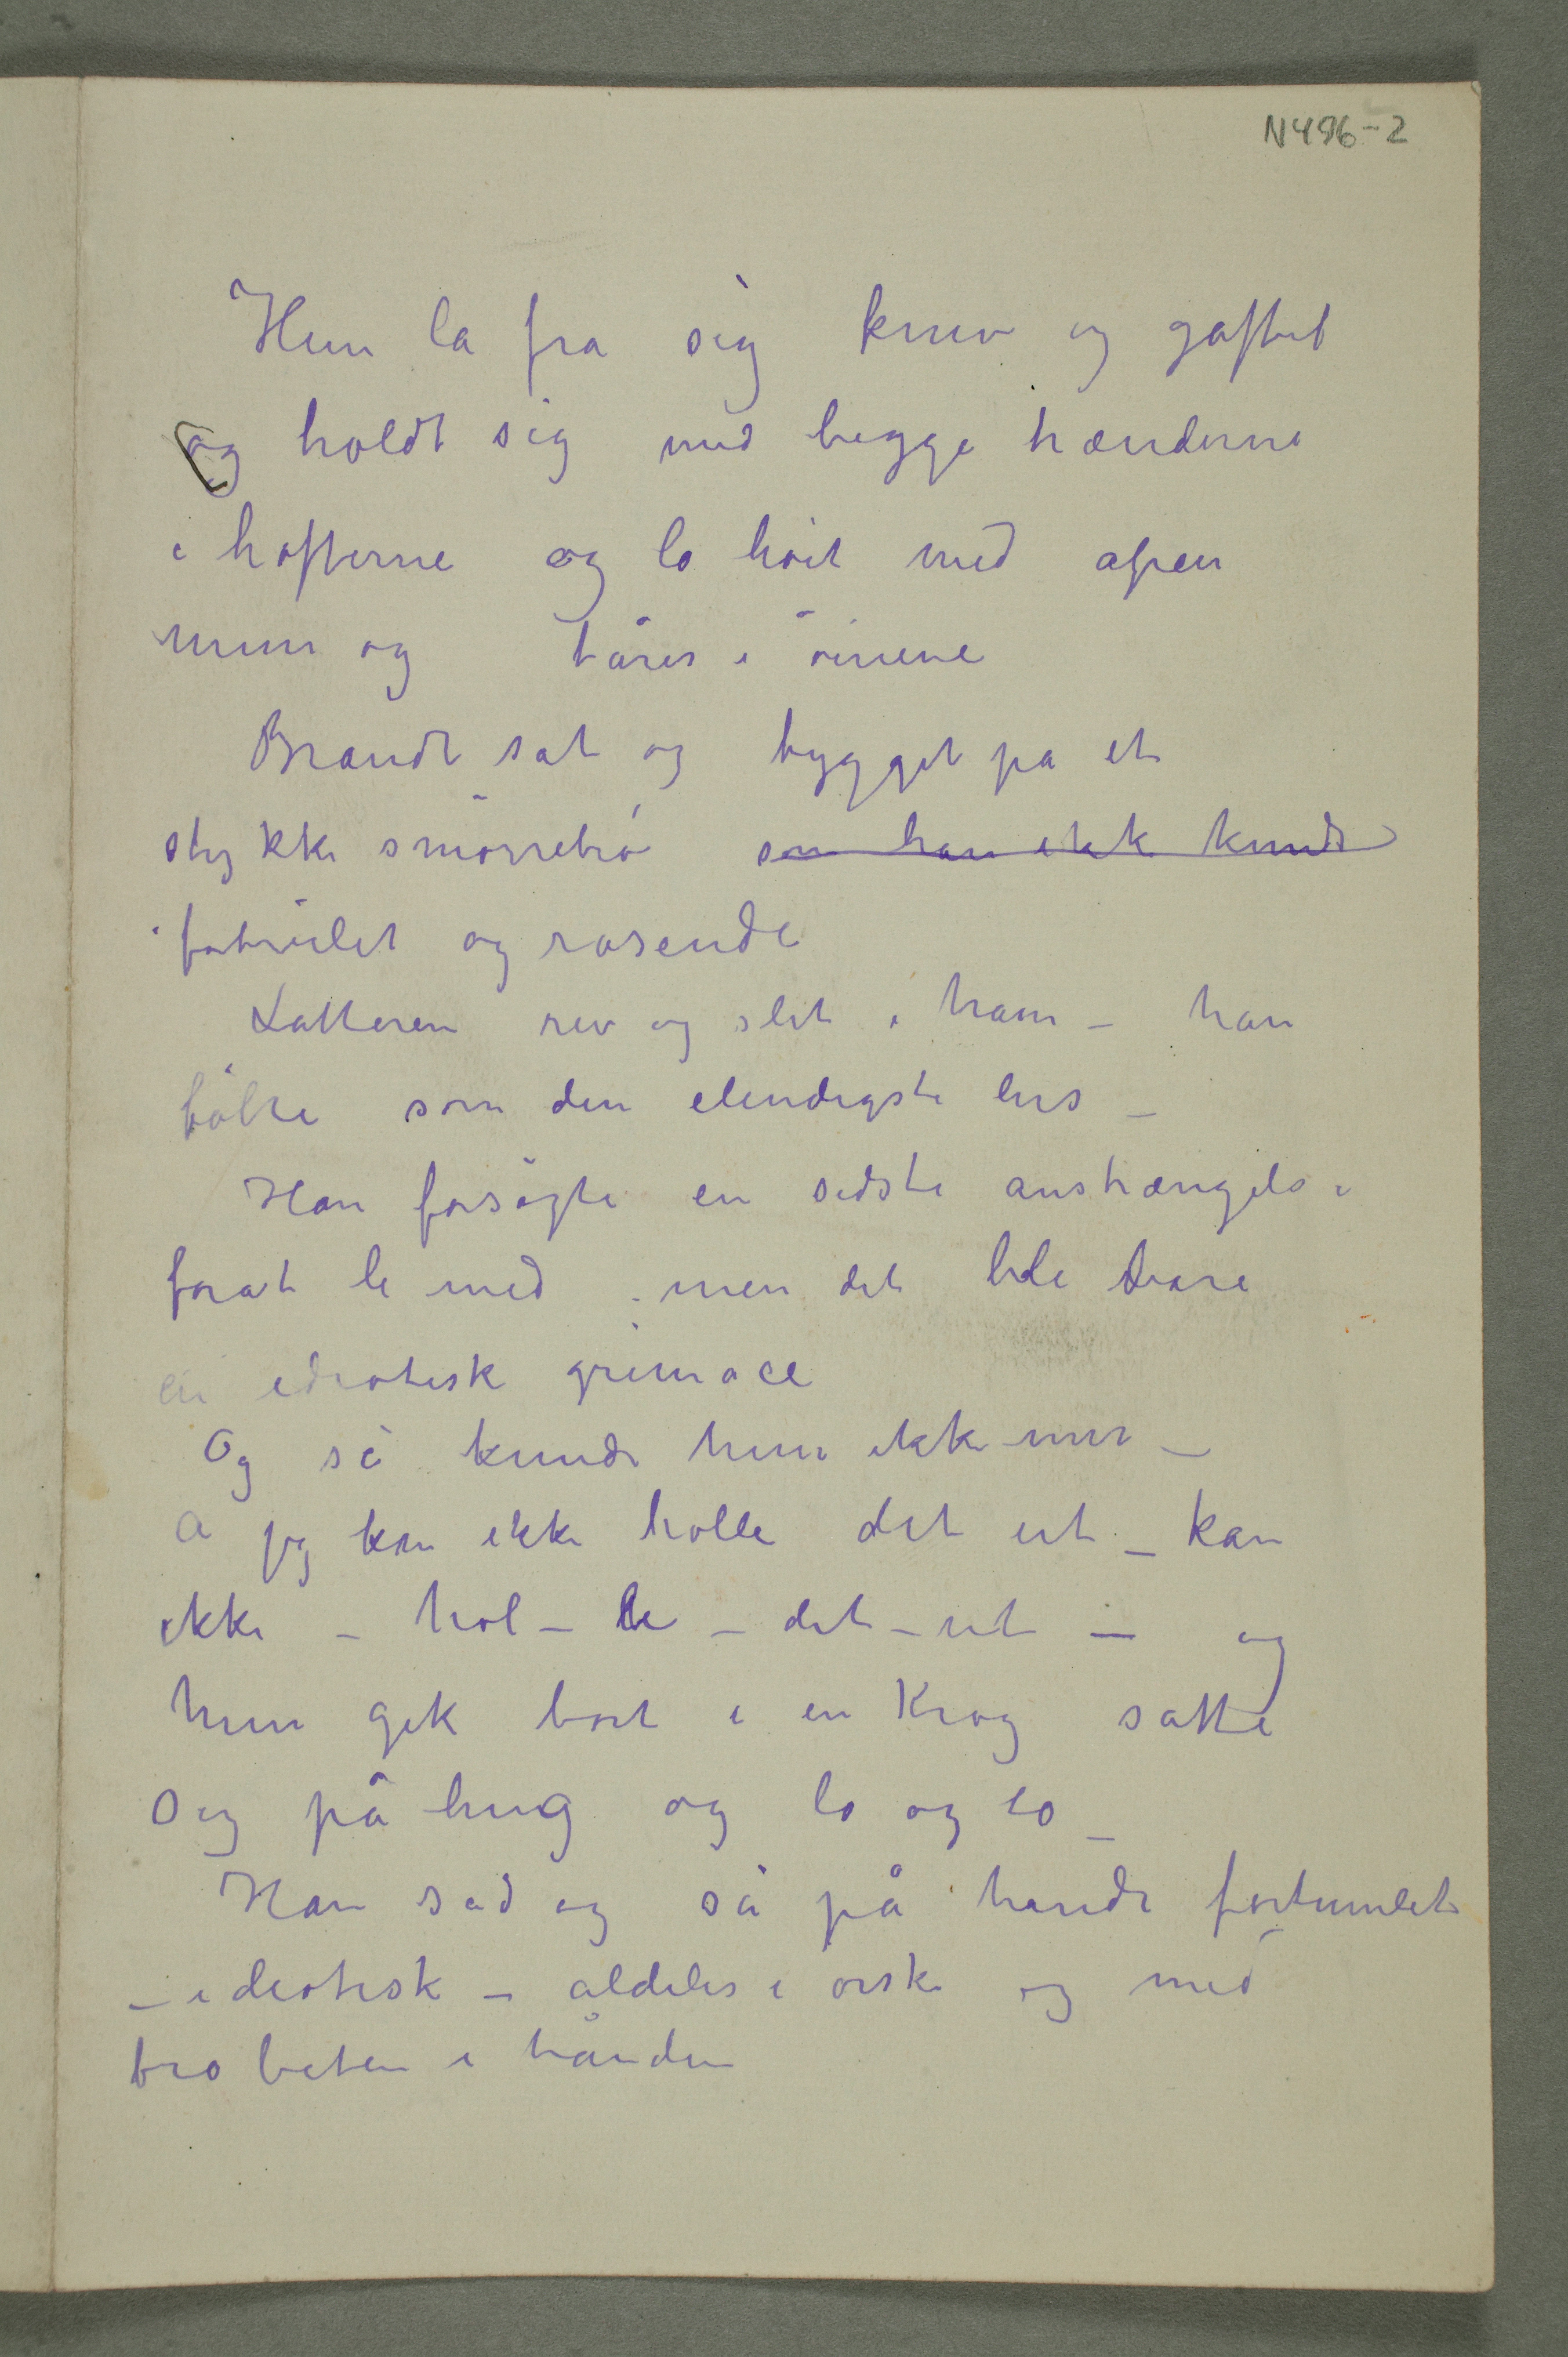 N496-2
Hun la fra sig kniv og gaffel
og holdt sig med begge hænderne
i hofterne og lo höit med apen
mun og tårer i öinene
Brandt sat og tygget pa et
stykke smörrebrö som han ikk kunde
fortvilet og rasende
Latteren rev og slet i ham – han
fölte som den elendigste lus –
Han forsögte en sidste anstrængelse
forat le med men det ble bare
en idiotisk grimace
Og så kunde hun ikke mer –
a jeg kan ikke holle det ut – kan
ikke – hol – le – det – ut – og
hun gik bort i en Krog satte
sig på hug og lo og lo –
Han sad og så på hende fortumlet
– idiotisk – aldeles i örske og med
brobeten i hånden